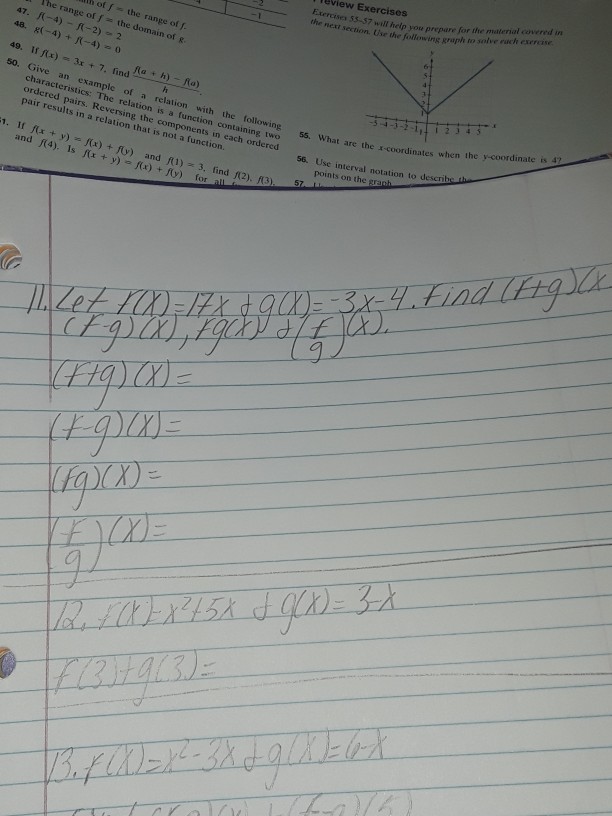 of f = the range of f.
47. The range of f = the domain of g.
48. f(−4) − f(−2) = 2
g(−4) + f(−4) = 0
49. If f(x) = 3x + 7, find f(a + h) − f(a)
h
50. Give an example of a relation with the following
characteristics: The relation is a function containing two
ordered pairs. Reversing the components in each ordered
pair results in a relation that is not a function.
51. If f(x + y) = f(x) + f(y) and f(1) = 3, find f(2), f(3),
and f(4). Is f(x + y) = f(x) + f(y) for all
−2
−1
Preview Exercises
Exercises 55–57 will help you prepare for the material covered in
the next section. Use the following graph to solve each exercise.
y
6
5
4
3
2
1
-5 -4 -3 -2 -1 1 2 3 4 5 x
55. What are the x-coordinates when the y-coordinate is 4?
56. Use interval notation to describe the
points on the graph
57.
11. Let f(x)=17x & g(x)=-3x-4. Find (f+g)(x
(f-g)(x), fg(x) & (f/g)(x).
(f+g)(x)=
(f-g)(x)=
(fg)(x)=
(f/g)(x)=
12. f(x)=x²+5x & g(x)=3-x
f(3)+g(3)=
13. f(x)=x²-3x & g(x)=6-x